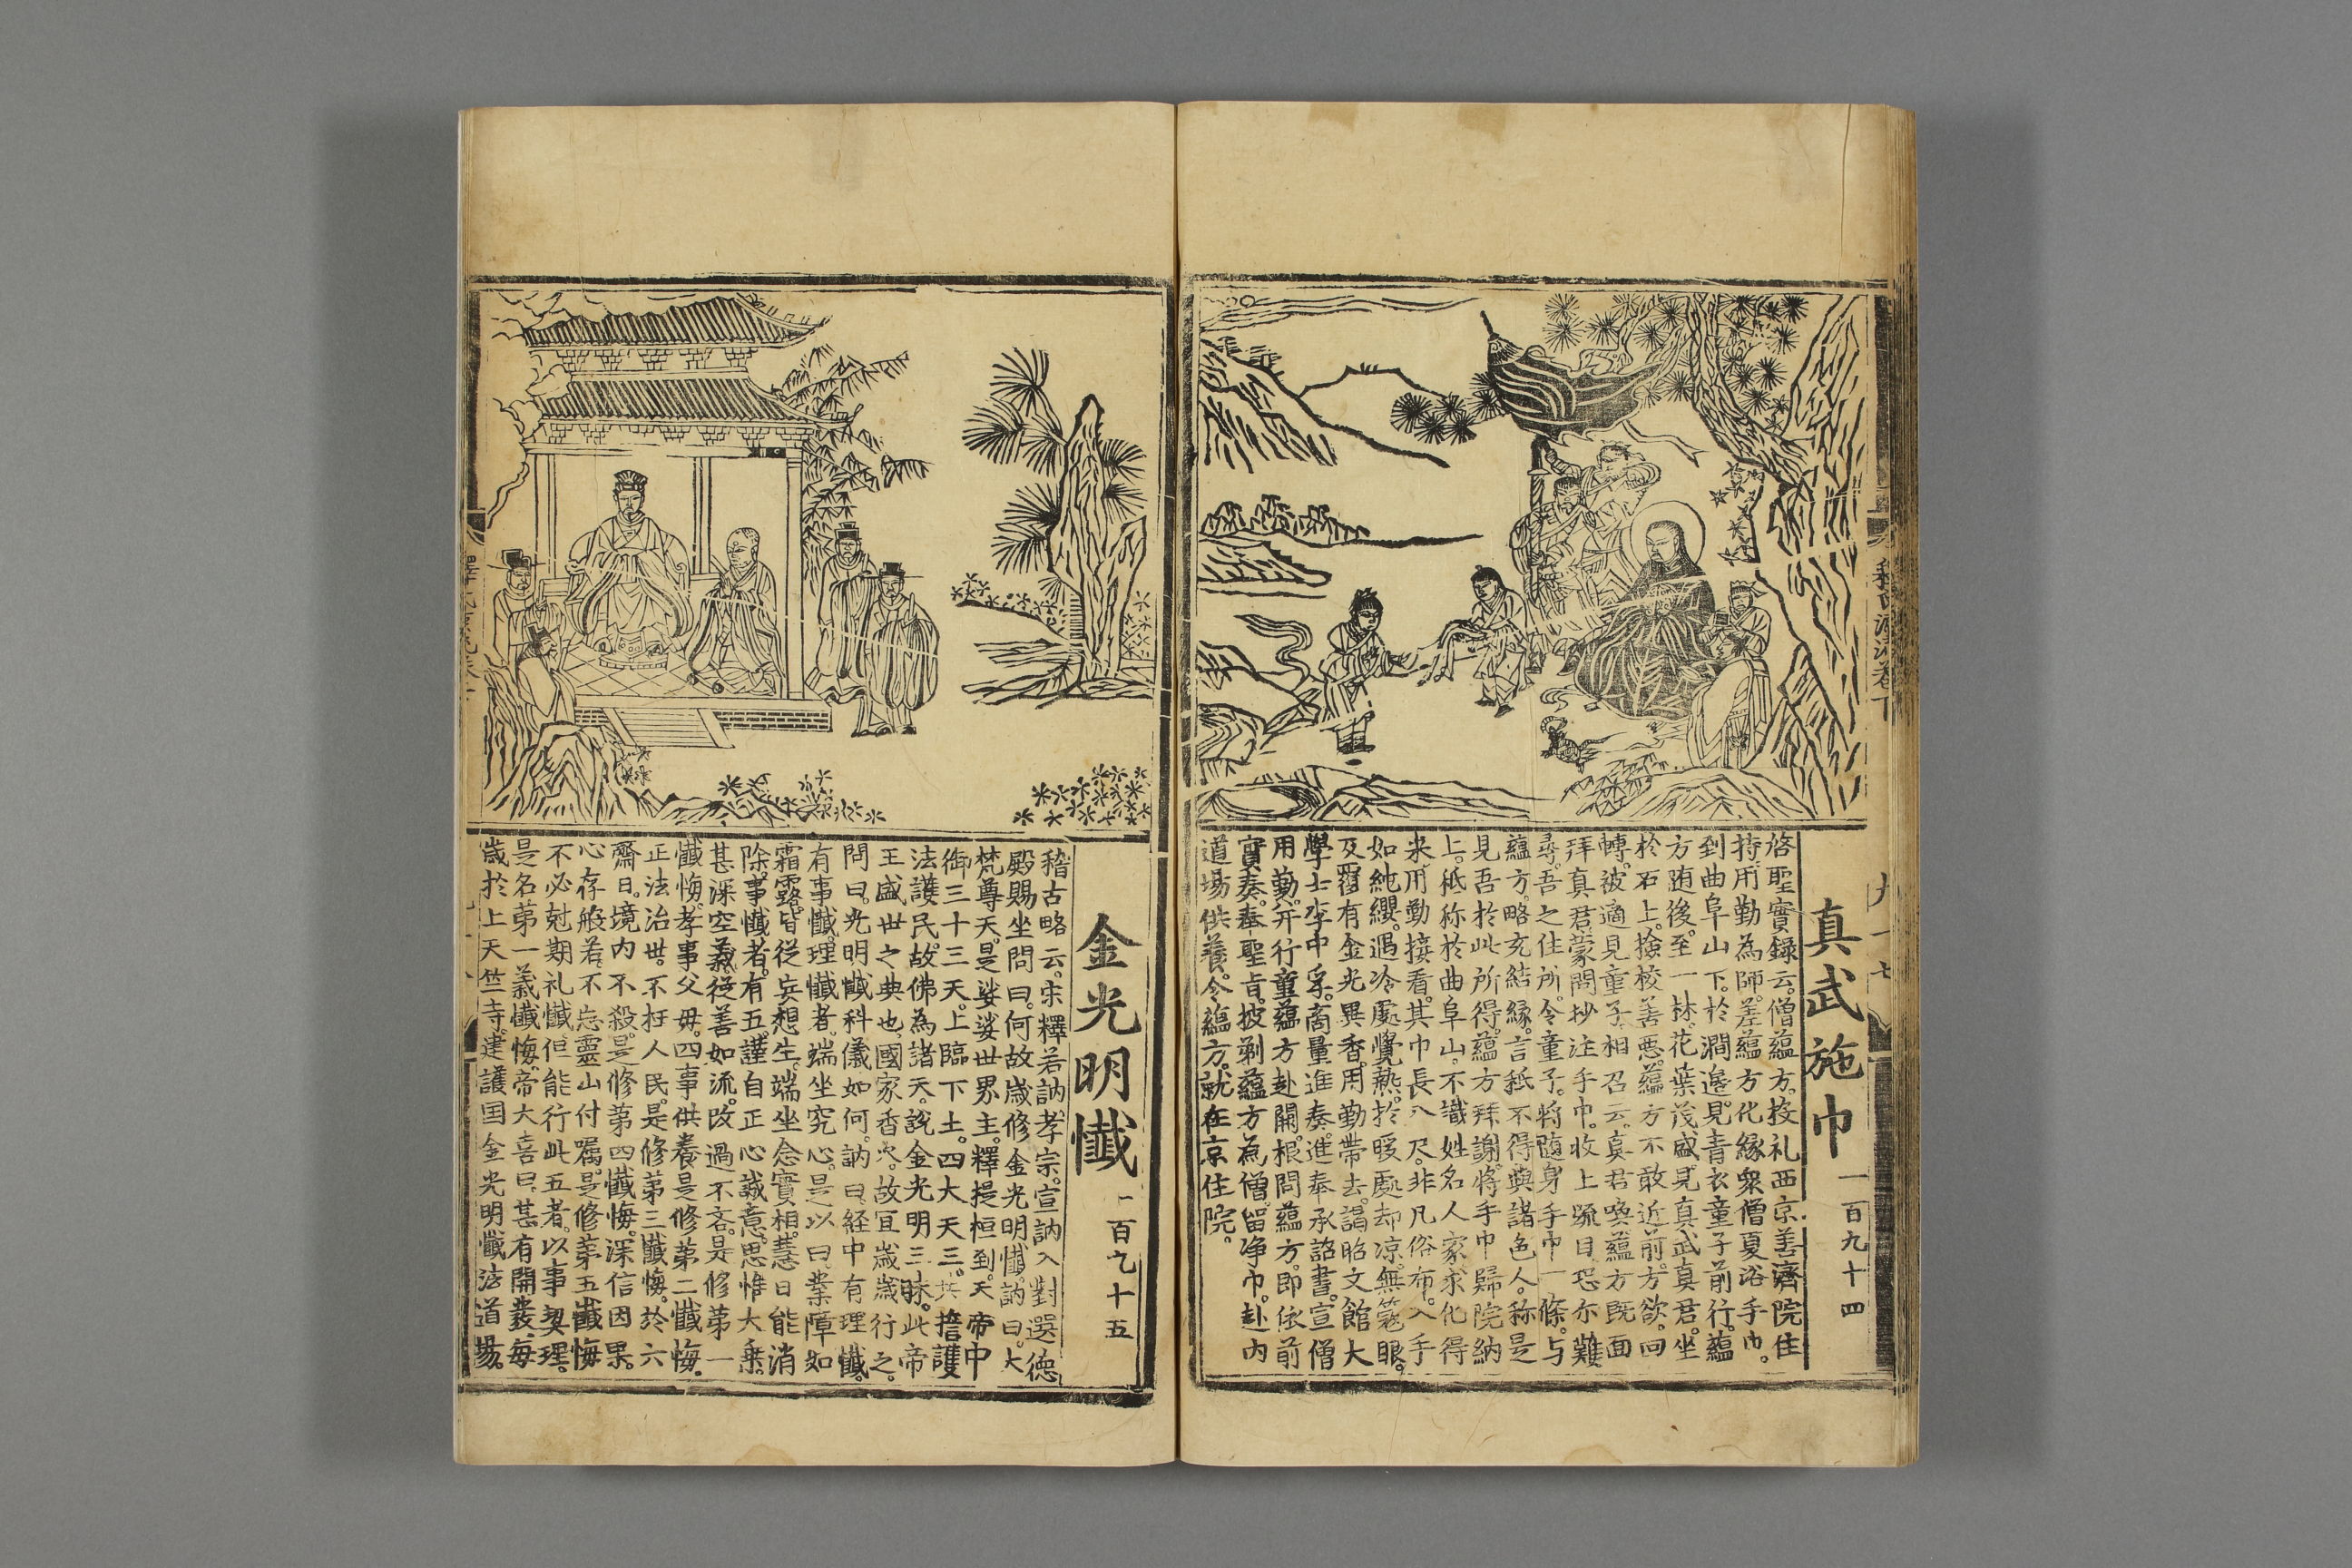 真武施巾 一百九十四
啓聖實録云。僧蘊方。按礼西京善濟院住
持。用勤為師。差蘊方化縁衆僧夏浴手巾。
到曲阜山下。於澗邉。見青衣童子前行。蘊
方随後。至一林。花葉茂盛。見真武真君。坐
於石上。撿校善悪。蘊方不敢近前。方欲回
轉。被適見童子。相召云。真君喚蘊方。既面
拜真君。蒙問抄注手巾。收上䟽目。恐尓難
尋。吾之住所。令童子。将随身手巾一條。与
蘊方。略充結縁。言秖不得與諸色人。称是
見吾於此所得。蘊方拜謝。将手巾歸院納
上。秖称於曲阜山。不識姓名人家。求化得
来。用勤接看。其巾長八尺。非凡俗布。入手
如純纓。遇冷處覺𤍠。於暖處却凉。無寇眼。
及覆有金光異香。用勤帶去。謁昭文館大
學士李中孚。商量進奏。進奉承詔書。宣僧
用勤。幷行童蘊方赴闕。根問蘊方。即依前
實奏。奉聖旨。披剃蘊方為僧。留净巾。赴内
道場供養。令蘊方。就在京住院。
金光明懺 一百九十五
稽古略云。宋釋若訥。孝宗。宣訥入對選德
殿賜坐問曰。何故歳修金光明懺。訥曰。大
梵尊天。是娑婆世界主。釋提桓到。天帝中
御三十三天。上臨下土。四大天王。共擔護
法護民。故佛為諸天。說金光明三昧。此帝
王盛世之典也。國家香火。故冝歳歳行之。
問曰。光明懺科儀如何。訥曰。経中有理懺。
有事懺。理懺者。端坐究心。是以曰。業障如
霜露。皆従妄想生。端坐念實相。慧日能消
除。事懺者。有五。謹自正心誠意。思惟大乗。
甚深空義。従善如流。改過不吝。是修第一
懺悔。孝事父毋。四事供養。是修第二懺悔。
正法治世。不枉人民。是修第三懺悔。於六
齋日。境内不殺。是修第四懺悔。深信因果。
心存般若。不忘靈山付嘱。是修第五懺悔
不必尅期礼懺。但能行此五者。以事契理。
是名第一義懺悔。帝大喜曰。甚有開發。毎
歳於上天竺寺。建護国金光明懺法道場。